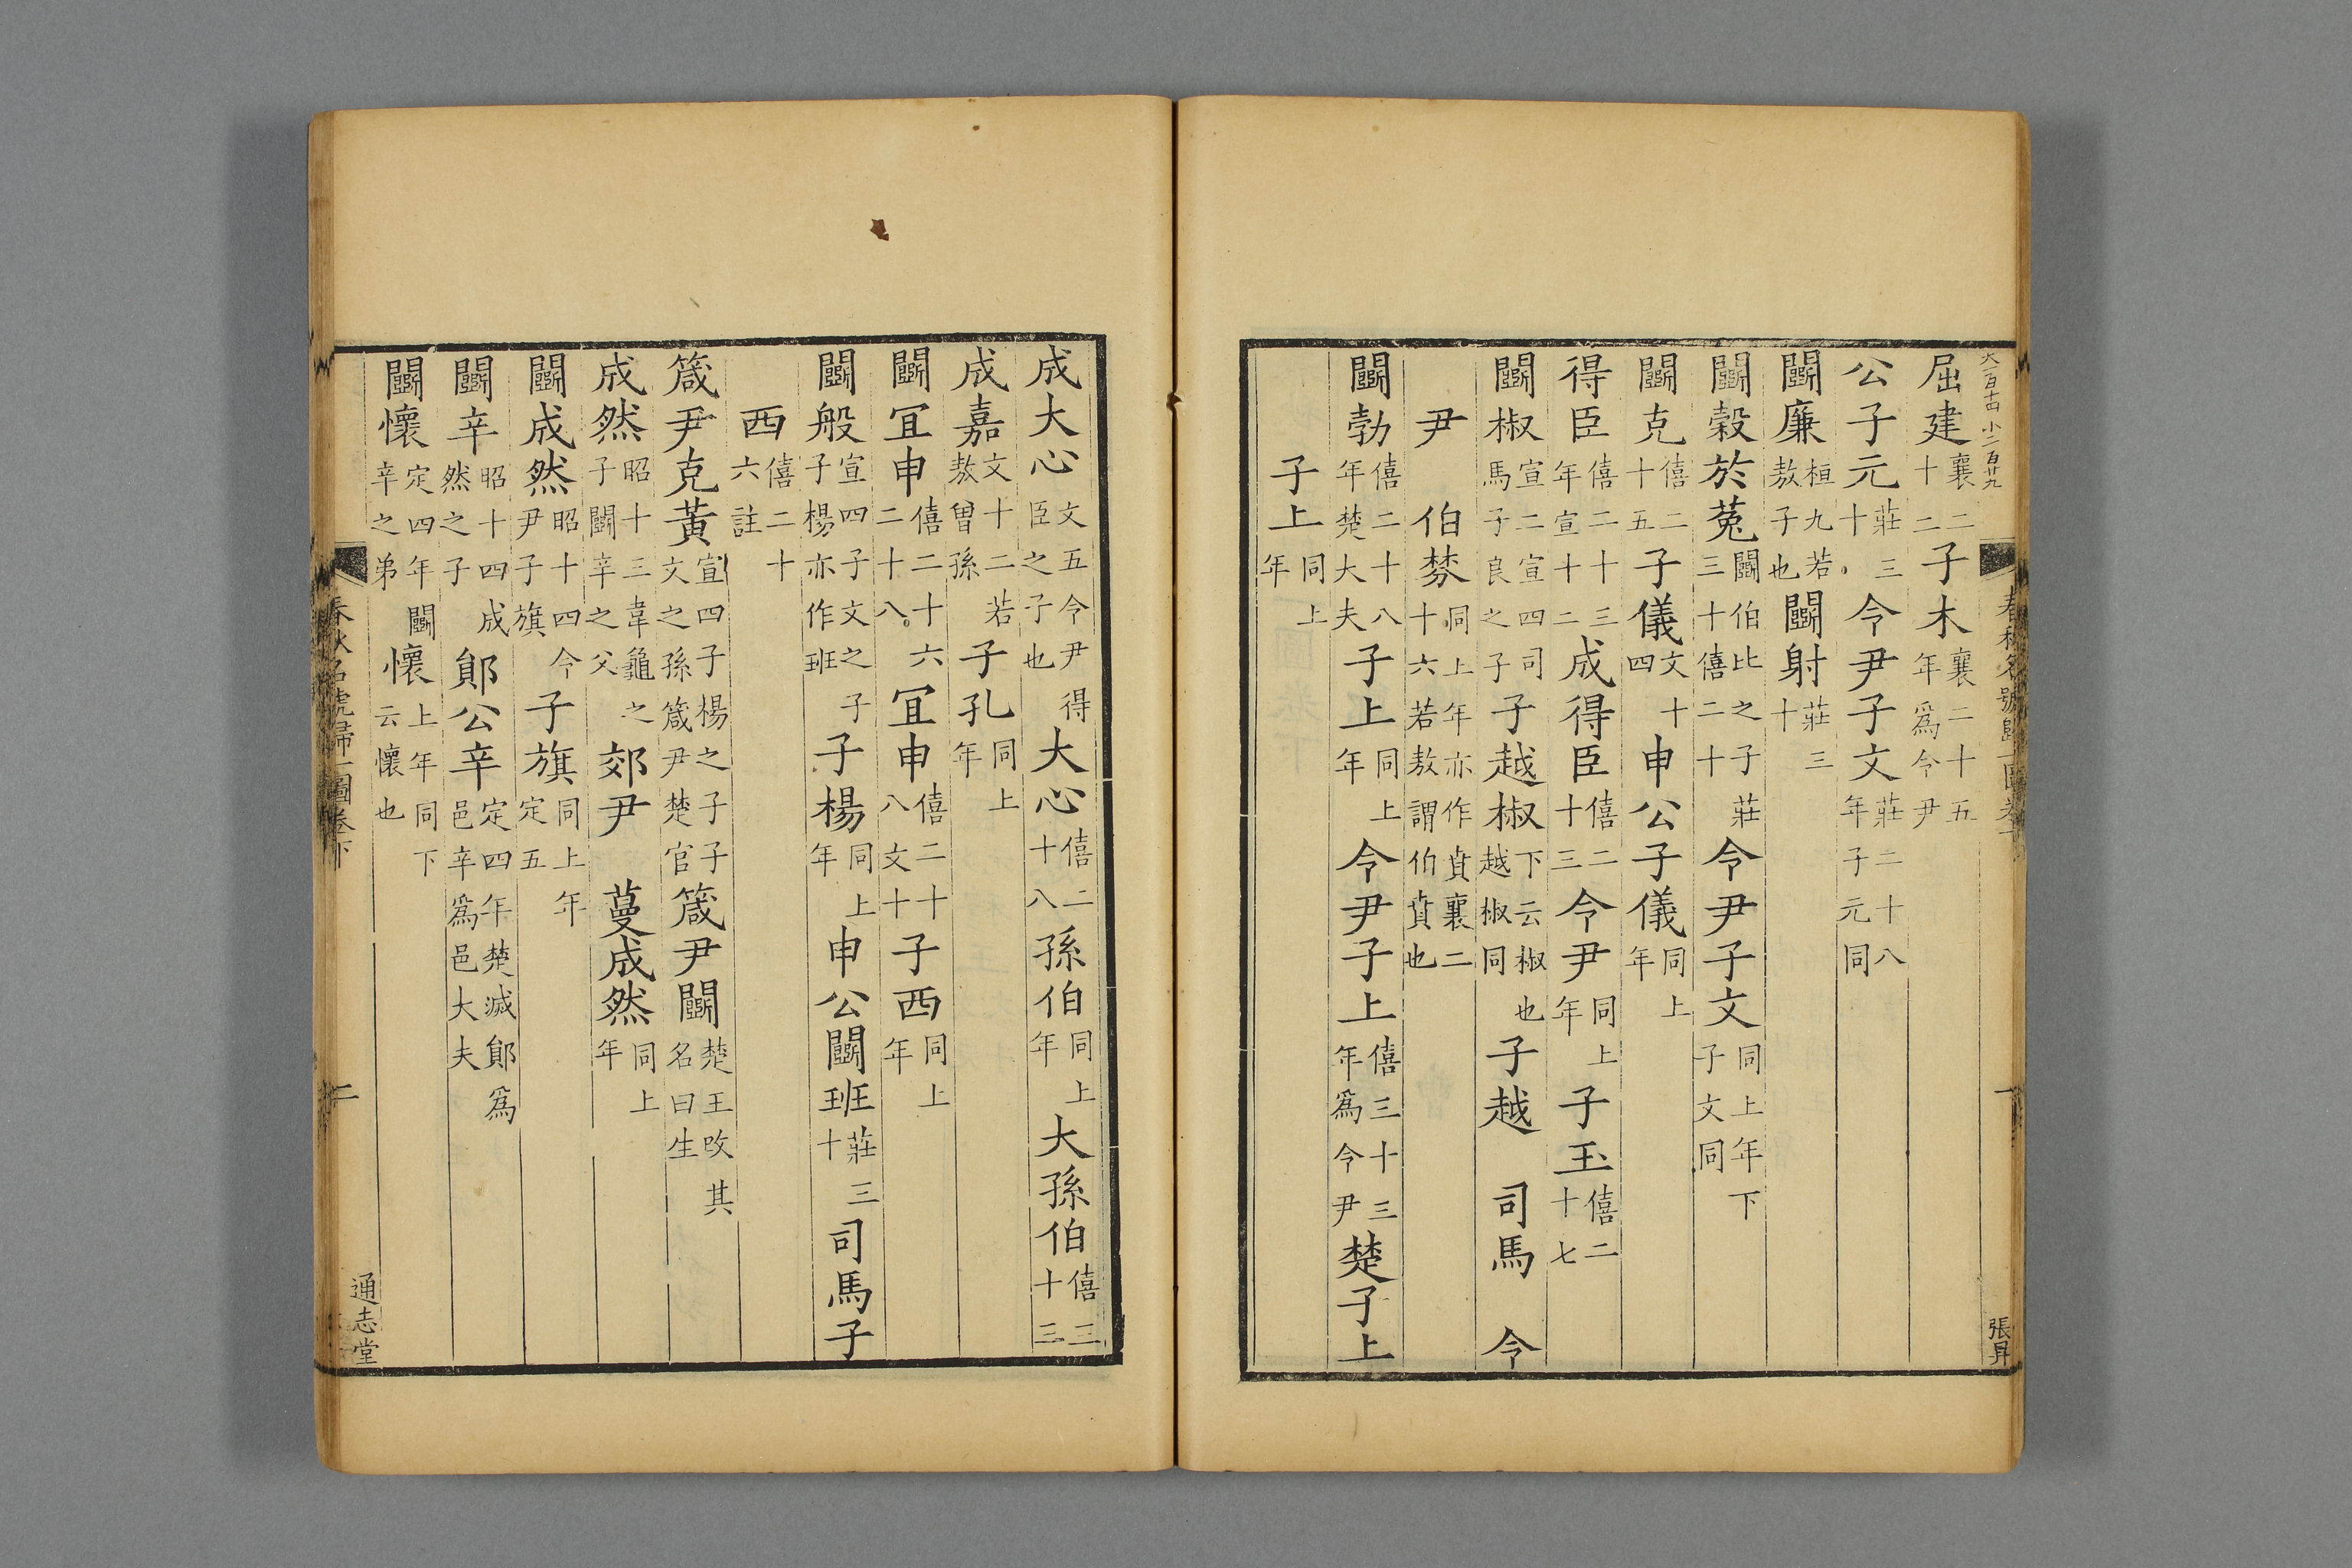 大一百十四 小二百廿九
春秋名號歸一圖卷下
一
張昇
屈建襄二十二子木襄二十五年爲令尹
公子元莊三十令尹子文莊二十八年子元同
鬭廉桓九若敖子也鬭射莊三十
鬭穀於菟鬭伯比之子莊三十僖二十令尹子文同上年下子文同
鬭克僖二十五子儀文十四申公子儀同上年
得臣僖二十三年宣十二成得臣僖二十三令尹同上年子玉僖二十七
鬭椒宣二宣四司馬子良之子子越椒下云椒也越椒同子越 司馬 令
尹 伯棼同上年亦作賁襄二十六若敖謂伯賁也
鬭勃僖二十八年楚大夫子上同上年令尹子上僖三十三年爲令尹楚子上
子上同上年
成大心文五令尹得臣之子也大心僖二十八孫伯同上年大孫伯僖三十三
成嘉文十二若敖曾孫子孔同上年
鬭宜申僖二十六二十八宜申僖二十八文十子西同上年
鬭般宣四子文之子子楊亦作班子楊同上年申公鬭班莊三十司馬子
西僖二十六註
箴尹克黃宣四子楊之子子文之孫箴尹楚官箴尹鬭楚王改其名曰生
成然昭十三韋龜之子鬭辛之父郊尹 蔓成然同上年
鬭成然昭十四令尹子旗子旗同上年定五
鬭辛昭十四成然之子鄖公辛定四年楚滅鄖爲邑辛爲邑大夫
鬭懷定四年鬭辛之弟懷上年同下云懷也
春秋名號歸一圖卷下
二
通志堂